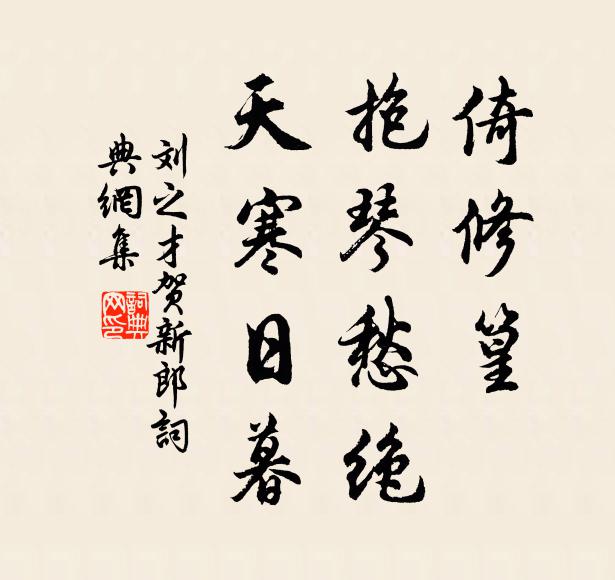 倚修篁
抱琴愁绝
天寒日暮
刘之才贺新郎词
典網集
詞典
网印